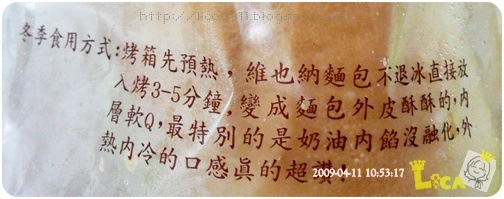 冬季食用方式:烤箱先預熱，維也納麵包不退冰直接放
入烤3-5分鐘，變成麵包外皮酥酥的,內
層軟Q,最特別的是奶油內餡沒融化,外
熱內冷的口感真的超讚!
2009-04-11 10:53:17
LICA